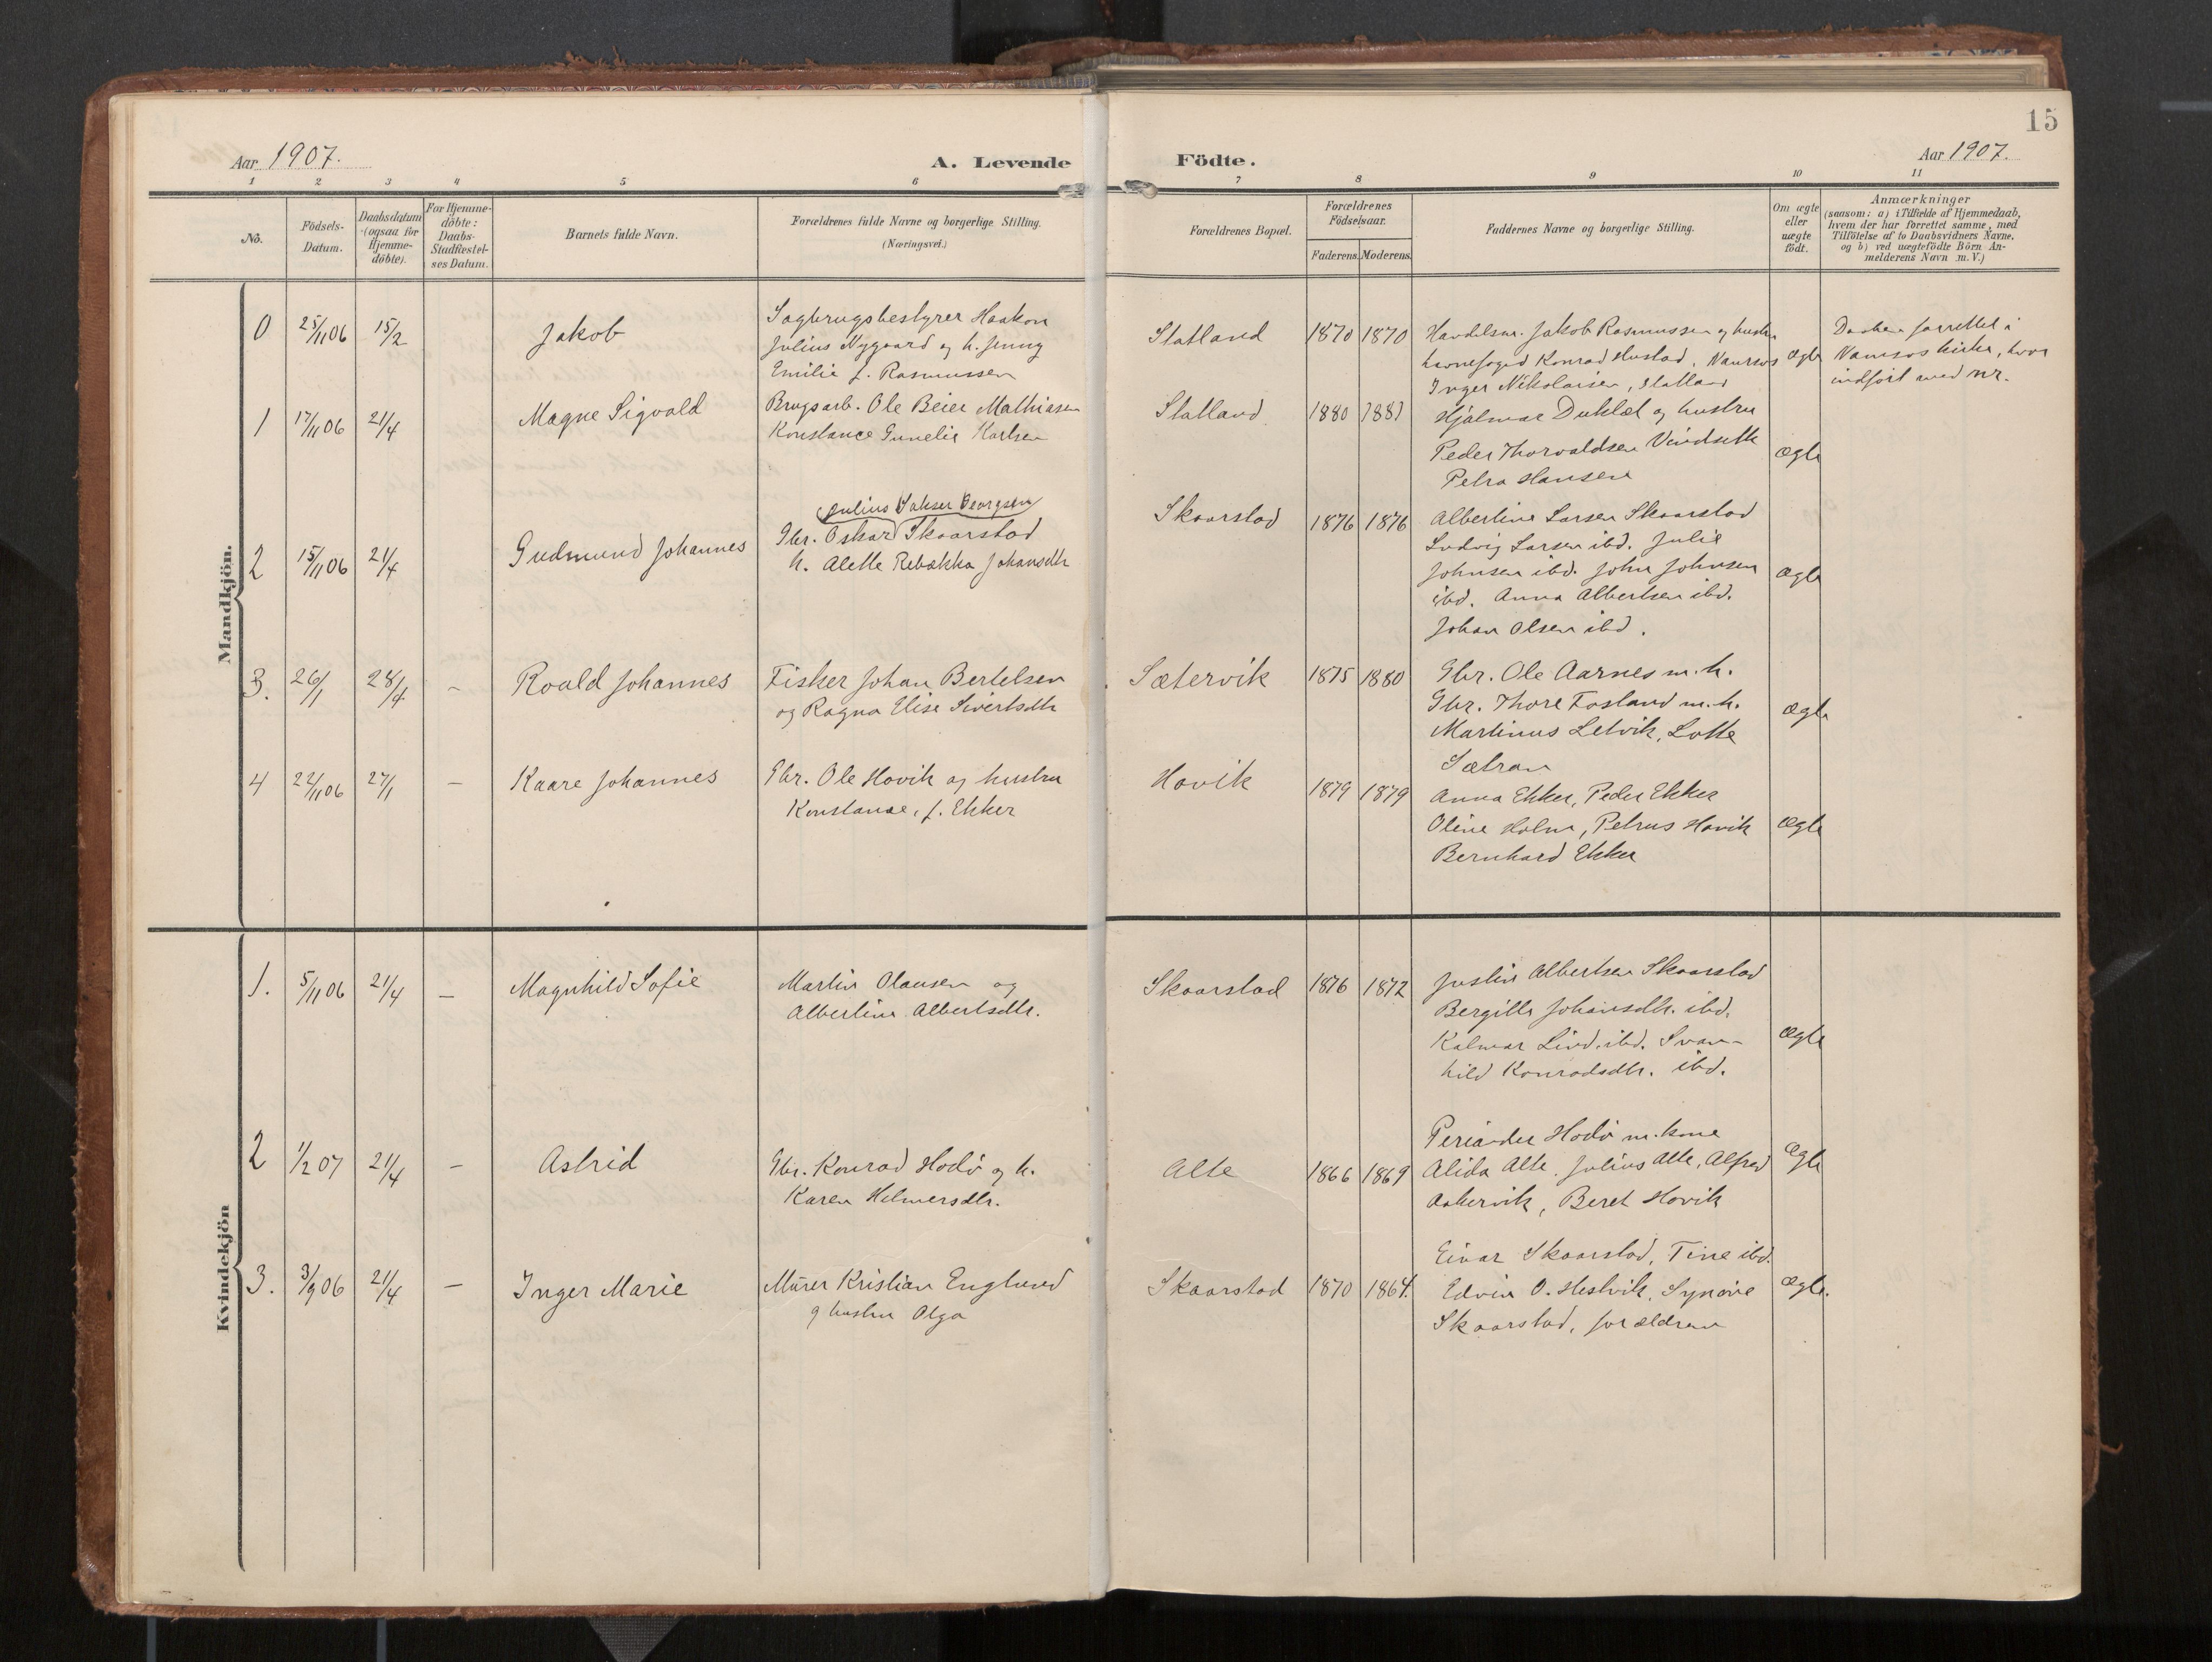 15
Aar 1907.
A. Levende
Födte.
Aar 1907.
1 2 3 4 5 6 7 8 9 10 11
No.
Födsels-
Datum.
Daabsdatum
(ogsaa for
Hjemme-
döbte).
For Hjemme-
döbte:
Daabs-
Stadfæstel-
ses Datum.
Barnets fulde Navn.
Forældrenes fulde Navne og borgerlige Stilling.
(Næringsvei.)
Forældrenes Bopæl.
Forældrenes
Födselsaar.
Faderens. Moderens.
Faddernes Navne og borgerlige Stilling.
Om ægte
eller
uægte
födt.
Anmærkninger
(saasom: a) i Tilfælde af Hjemmedaab,
hvem der har forrettet samme, med
Tilföielse af to Daabsvidners Navne,
og b) ved uægtefödte Börn An-
melderens Navn m. V.)
Mandkjön.
0 25/11 06 15/2 Jakob
Sagbrugsbestyrer Haakon
Julius Nygaard og h. Jenny
Emilie f. Rasmussen
Statland 1870 1870
Handelsm. Jakob Rasmussen og hustru
havnefoged Konrad Hustad, Namsos
Inger Nikolaisen, Statland
ægte
Daaben forrettet i
Namsos kirke, hvor
indført med nr.
1 17/11 06 21/4 Magne Sigvald
Brugsarb. Ole Beier Mathiasen
Konstance Gunelie Karlsen
Statland 1880 1881
Hjalmar Duklæt og hustru
Peder Thorvaldsen Vindsetth
Petra Hansen
ægte
2 15/11 06 21/4 Gudmund Johannes
(Julius Georgsen)
Gbr. Oskar Skaarstad
h. Alette Rebækka Johansdtr
Skaarstad 1876 1876
Albertine Larsen Skaarstad
Ludvig Larsen ibd. Julie
Johnsen ibd. John Johnsen
ibd. Anna Albertsen ibd.
Johan Olsen ibd.
ægte
3. 26/1 28/4 – Roald Johannes
Fisker Johan Bertelsen
og Ragna Elise Sivertsdtr
Sætervik 1875 1880
Gbr. Ole Aarnes m. h.
Gbr. Thore Fosland m. h.
Martinus Letvik, Lotte
Sætran
ægte
4 22/11 06 27/1 – Kaare Johannes
Gbr. Ole Hovik og hustru
Konstance, f. Ekker
Hovik 1879 1879
Anna Ekker, Peder Ekker
Oline Holm, Petrus Hovik
Bernhard Ekker
ægte
Kvindekjön
1. 5/11 06 21/4 – Magnhild Sofie
Martin Olausen og
Albertine Albertsdtr.
Skaarstad 1876 1872
Justin Albertsen Skaarstad
Bergitte Johansdtr. ibd.
Kalmar Lind, ibd. Svan-
hild Konradsdtr. ibd.
ægte
2 1/2 07 21/4 – Astrid
Gbr. Konrad Hodø og h.
Karen Helmersdtr.
Alte 1866 1869
Periander Hodø m. kone
Alida Alte, Julius Alte, Alfred
Aakervik, Beret Hovik
ægte
3. 3/9 06 21/4 – Inger Marie
Murer Kristian Englund
og hustru Olga
Skaarstad 1870 1864.
Einar Skaarstad, Tine ibd.
Edvin O. Hestvik, Synøve
Skaarstad, forældrene
ægte.